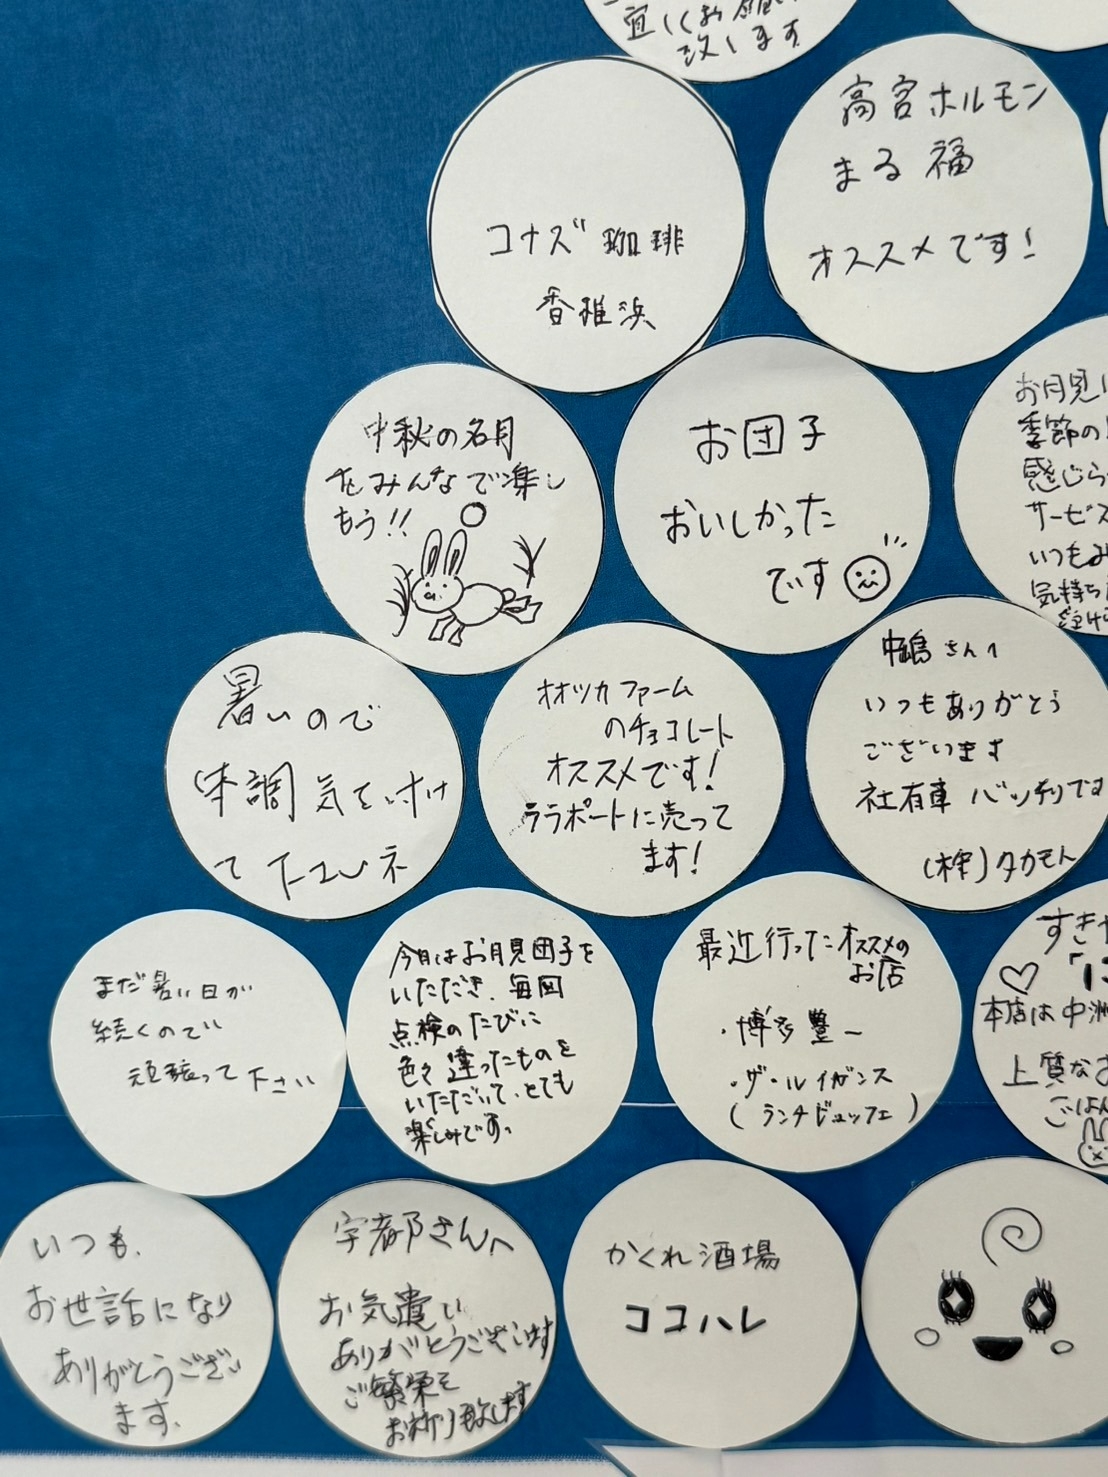 宜しくお願い
致します
高宮ホルモン
まる福
オススメです!
コナズ珈琲
香椎浜
お月見
季節の
感じら
サービス
いつもみ
気持ち
中秋の名月
をみんなで楽し
もう!!
お団子
おいしかった
です
中嶋さんへ
いつもありがとう
ございます
社有車 バッチリです
(株)タカモト
オオツカファーム
のチョコレート
オススメです!
ララポートに売って
ます!
暑いので
体調気を付け
て下さいネ
すきや
本店は中洲
上質なお
ごはん
最近行ったオススメの
お店
・博多豊一
・ザ・ルイガンス
(ランチビュッフェ)
今日はお月見団子を
いただき、毎回
点検のたびに
色々違ったものを
いただいて、とても
楽しみです。
まだ暑い日が
続くので
頑張って下さい
いつも、
お世話になり
ありがとうござい
ます。
宇都さんへ
お気遣い
ありがとうございます
ご繁栄を
お祈り致します
かくれ酒場
ココハレ